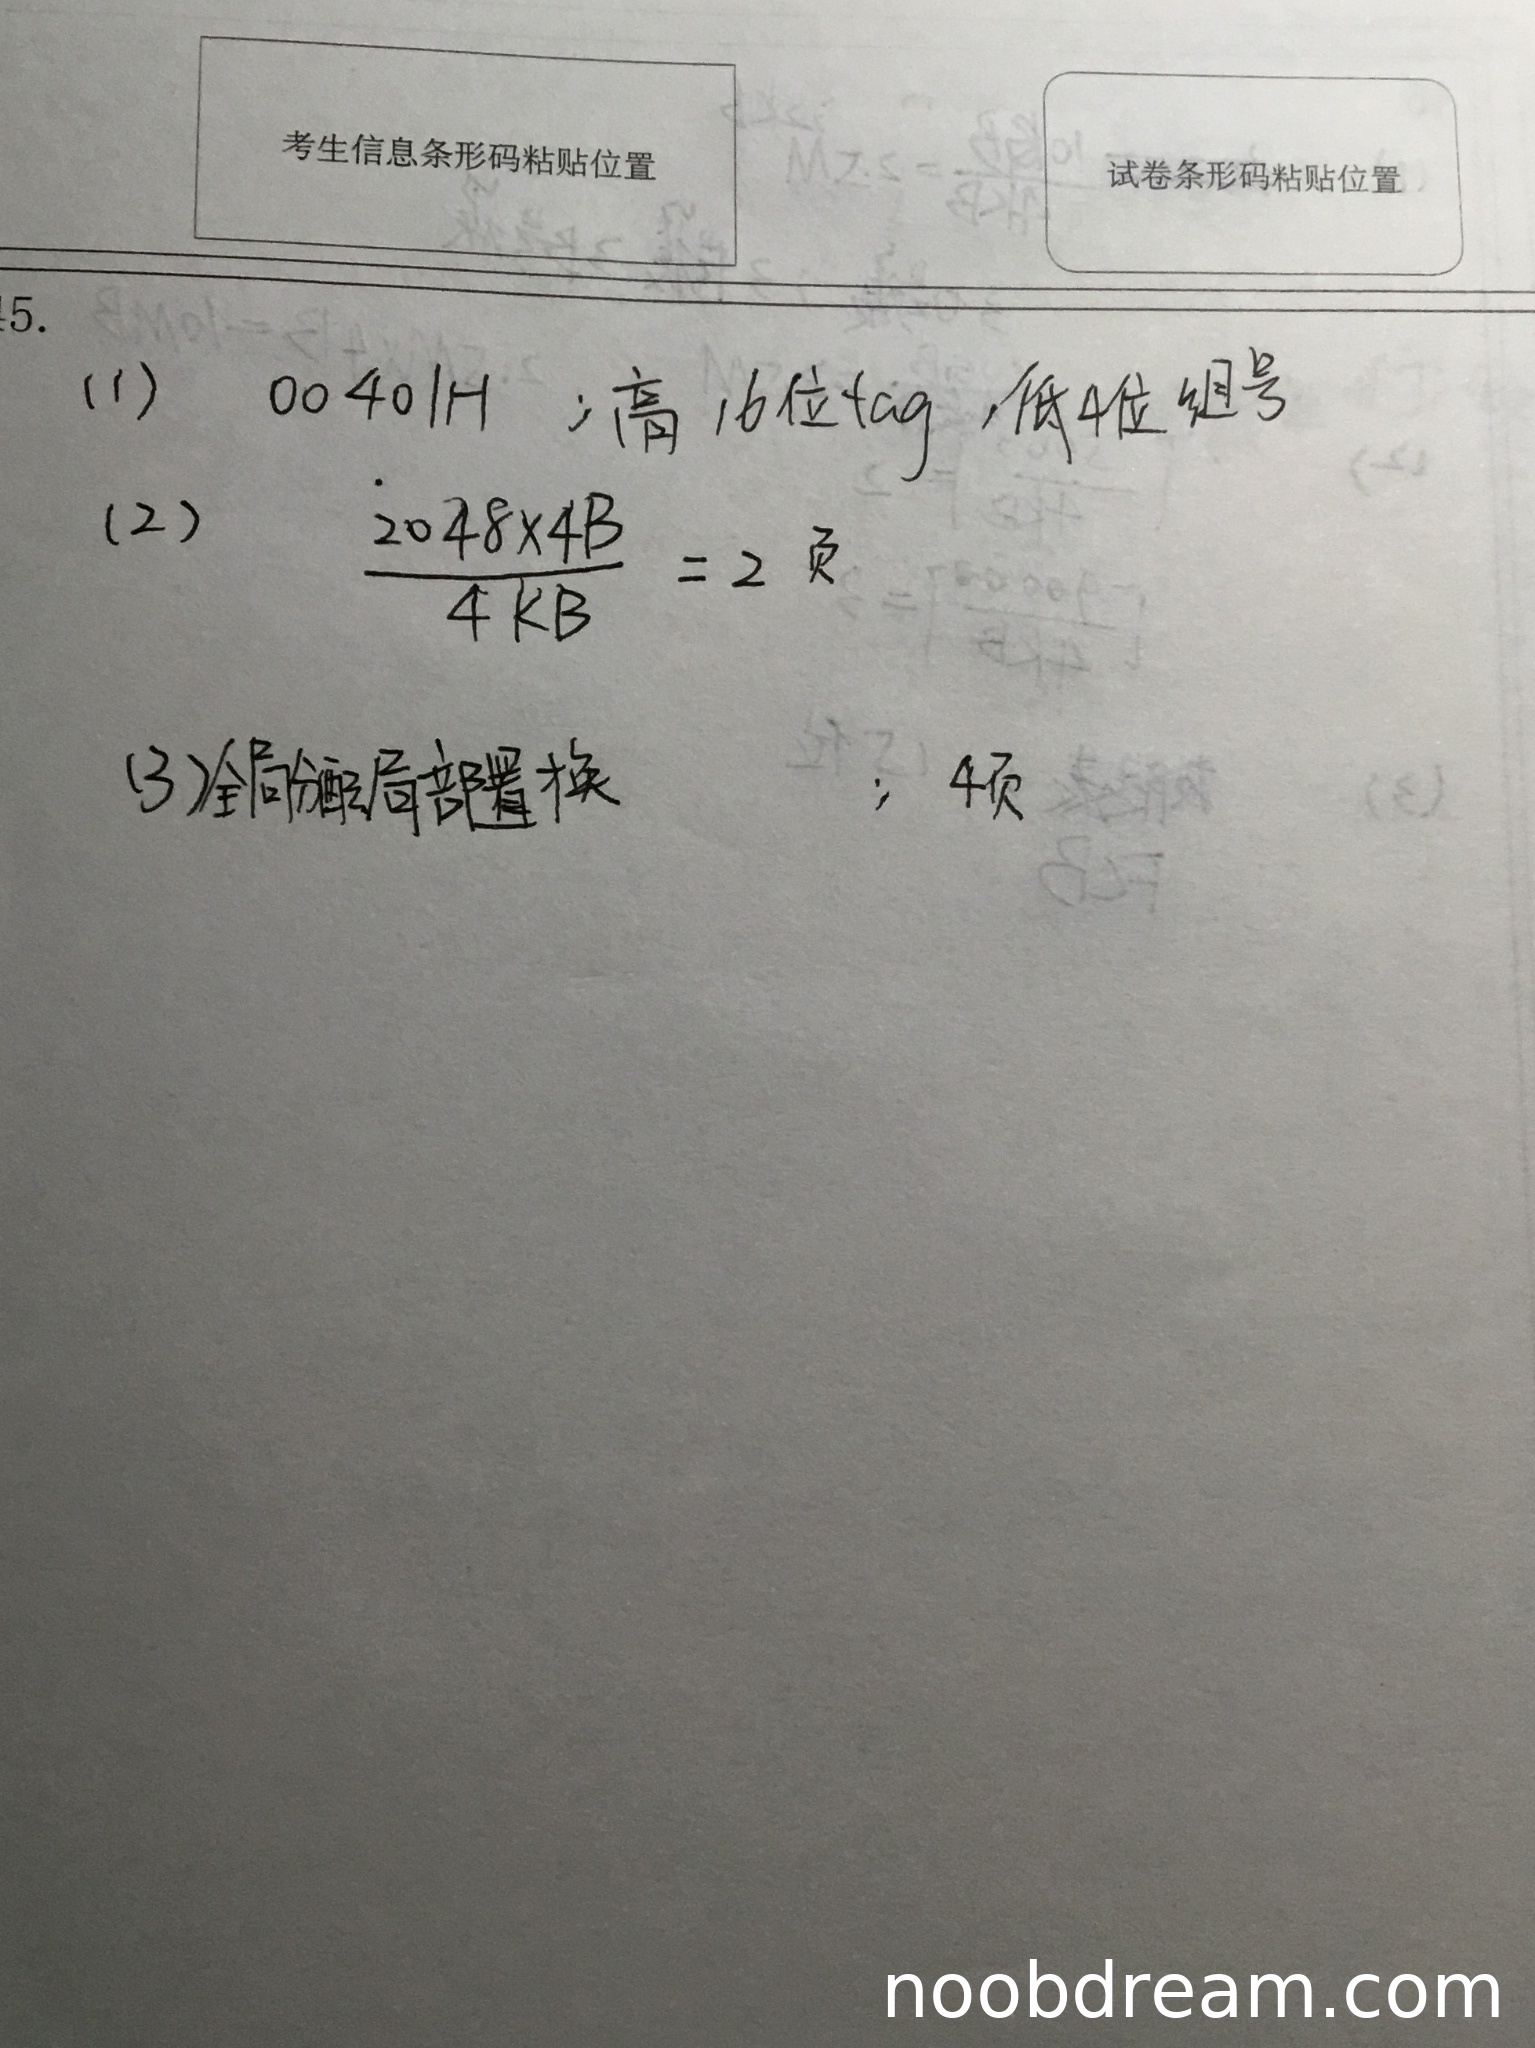 考生信息条形码粘贴位置
试卷条形码粘贴位置
45.
(1) 00401H ; 高16位tag , 低4位 组号
(2) 2048×4B
4KB = 2 页
(3) 全局分配局部置换 ; 4页
noobdream.com